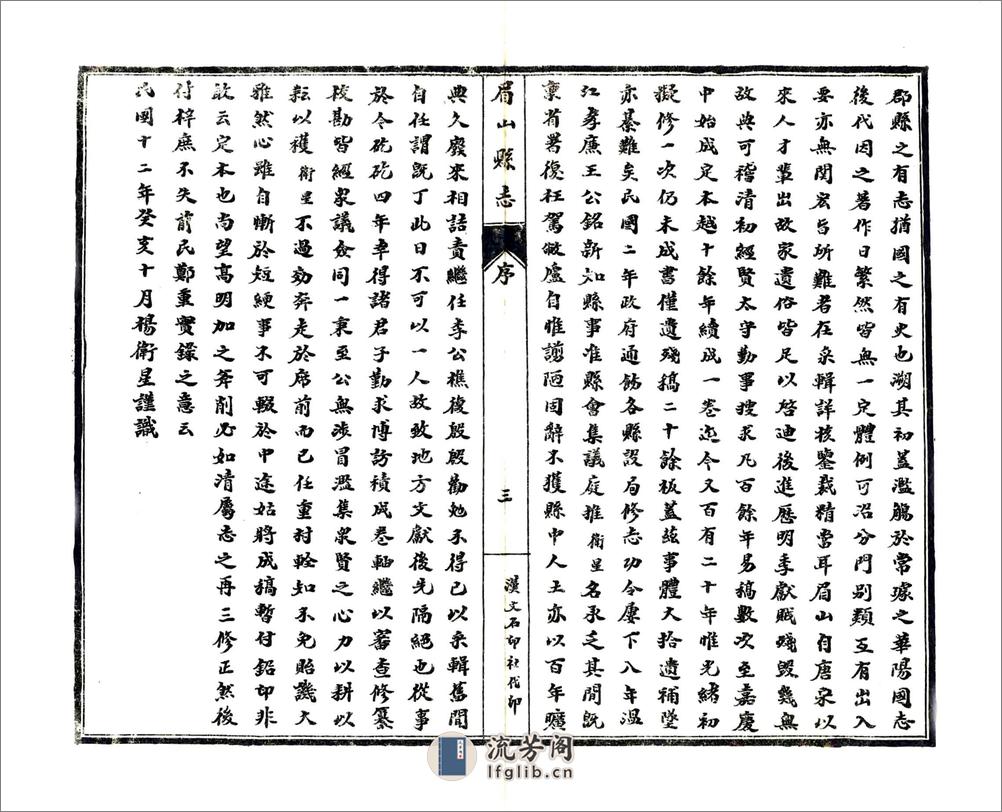 郡縣之有志猶國之有史也溯其初蓋濫觴於常璩之華陽國志
後代因之著作日繁然皆無一定體例可沿分門別類互有出入
要亦無閎宏旨所難者在采輯詳核鑒裁精當耳眉山自唐宋以
來人才輩出故家遺俗皆足以啓迪後進歷明季獻賊殘毀幾無
故典可稽清初經賢太守勤事搜求凡百餘年易稿數次至嘉慶
中始成定本越十餘年續成一卷迄今又百有二十年惟光緒初
擬修一次仍未成書僅遺殘稿二十餘板蓋茲事體大拾遺補墜
亦綦難矣民國二年政府通飭各縣設局修志功令屢下八年溫
江孝廉王公銘新知縣事准縣會集議庭推衛星名承乏其間既
稟省署復枉駕敝廬自惟謭陋固辭不獲縣中人士亦以百年曠
眉山縣志
序
三
漢文石印社代印
典久廢來相詰責繼任李公樵復殷殷勸勉不得已以采輯舊聞
自任謂既丁此日不可以一人故致地方文獻後先隔絕也從事
於今矻矻四年幸得諸君子勤求博訪積成卷軸繼以審查修纂
校勘皆經眾議僉同一秉至公無涉冒濫集眾賢之心力以耕以
耘以穫衛星不過効奔走於席前而已任重材輕知不免貽譏大
雅然心雖自慚於短綆事不可輟於中途姑將成稿暫付鉛印非
敢云定本也尚望高明加之筆削必如清屬志之再三修正然後
付梓庶不失前民鄭重實錄之意云
民國十二年癸亥十月楊衛星謹識
流芳阁
lfglib.cn